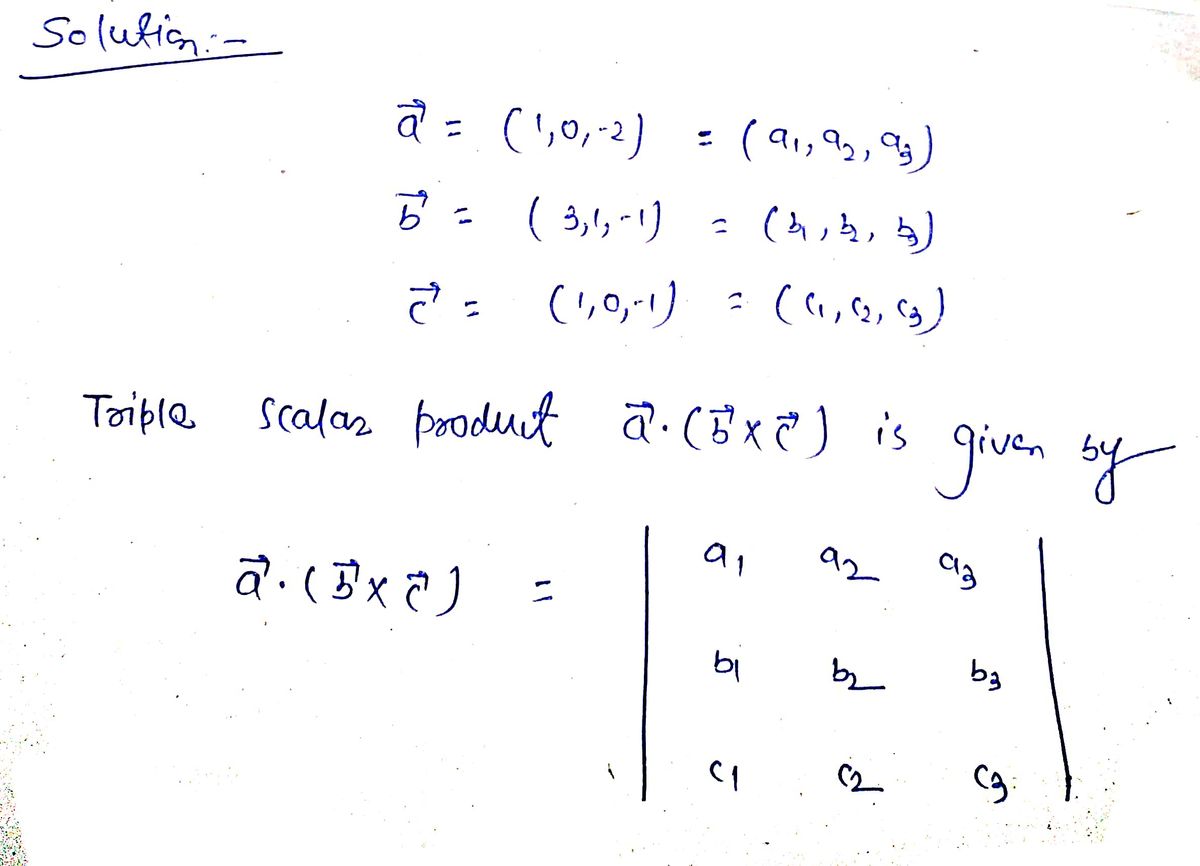 Solution:-
a⃗ = (1,0,-2) = (a₁, a₂, a₃)
b⃗ = (3,1,-1) = (b₁, b₂, b₃)
c⃗ = (1,0,-1) = (c₁, c₂, c₃)
Triple scalar product a⃗·(b⃗×c⃗) is given by
a⃗·(b⃗×c⃗) = | a₁ a₂ a₃ |
| b₁ b₂ b₃ |
| c₁ c₂ c₃ |